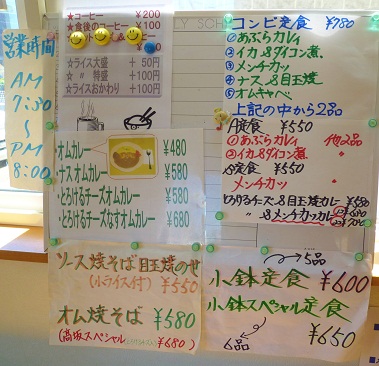 営業時間
AM
7:30
〜
PM
8:00
★コーヒー ¥200
★食後のコーヒー ¥100
¥100
¥200
☆ライス大盛 + 50円
☆ 〃 特盛 + 100円
☆ライスおかわり + 100円
・オムカレー ¥480
・ナスオムカレー ¥580
・とろけるチーズオムカレー ¥580
・とろけるチーズなすオムカレー ¥680
ソース焼そば 目玉焼のせ
(小ライス付) ¥550
オム焼そば ¥580
(高坂スペシャル ¥680)
コンビ定食 ¥780
①あぶらカレイ
②イカ&ダイコン煮
③メンチカツ
④ナス&目玉焼
⑤オムキャベ
上記の中から2品
A定食 ¥550
①あぶらカレイ 他2品
②イカ&ダイコン煮 〃
B定食 ¥550
メンチカツ 〃
とろけるチーズ&目玉焼カレー ¥580
〃 &メンチカツカレー
5品
小鉢定食 ¥600
小鉢スペシャル定食
6品 ¥650